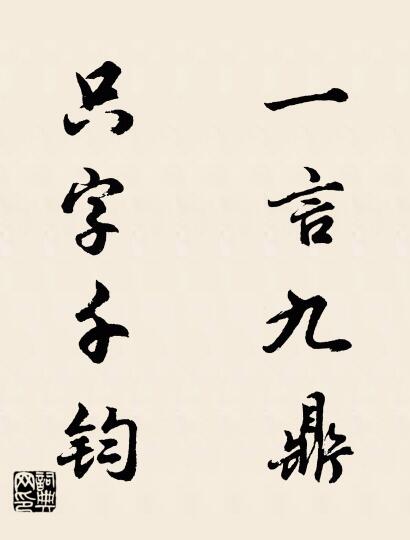 一言九鼎
只字千钧
詞典网印